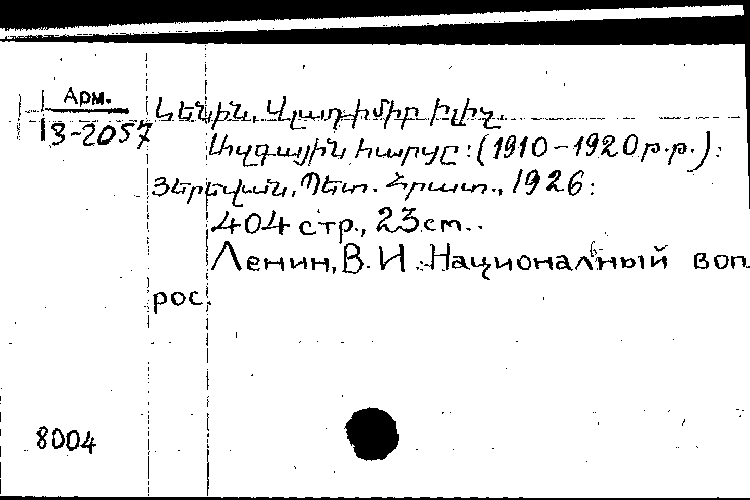 Арм.
13-2057
Լենին, Վլադիմիր Իլիչ.
Ազգային հարցը: (1910-1920 р.р.):
Յերևան, Պետ. Հրատ., 1926:
404 стр., 23 cm..
Ленин, В. И. Национальный воп
рос.
8004